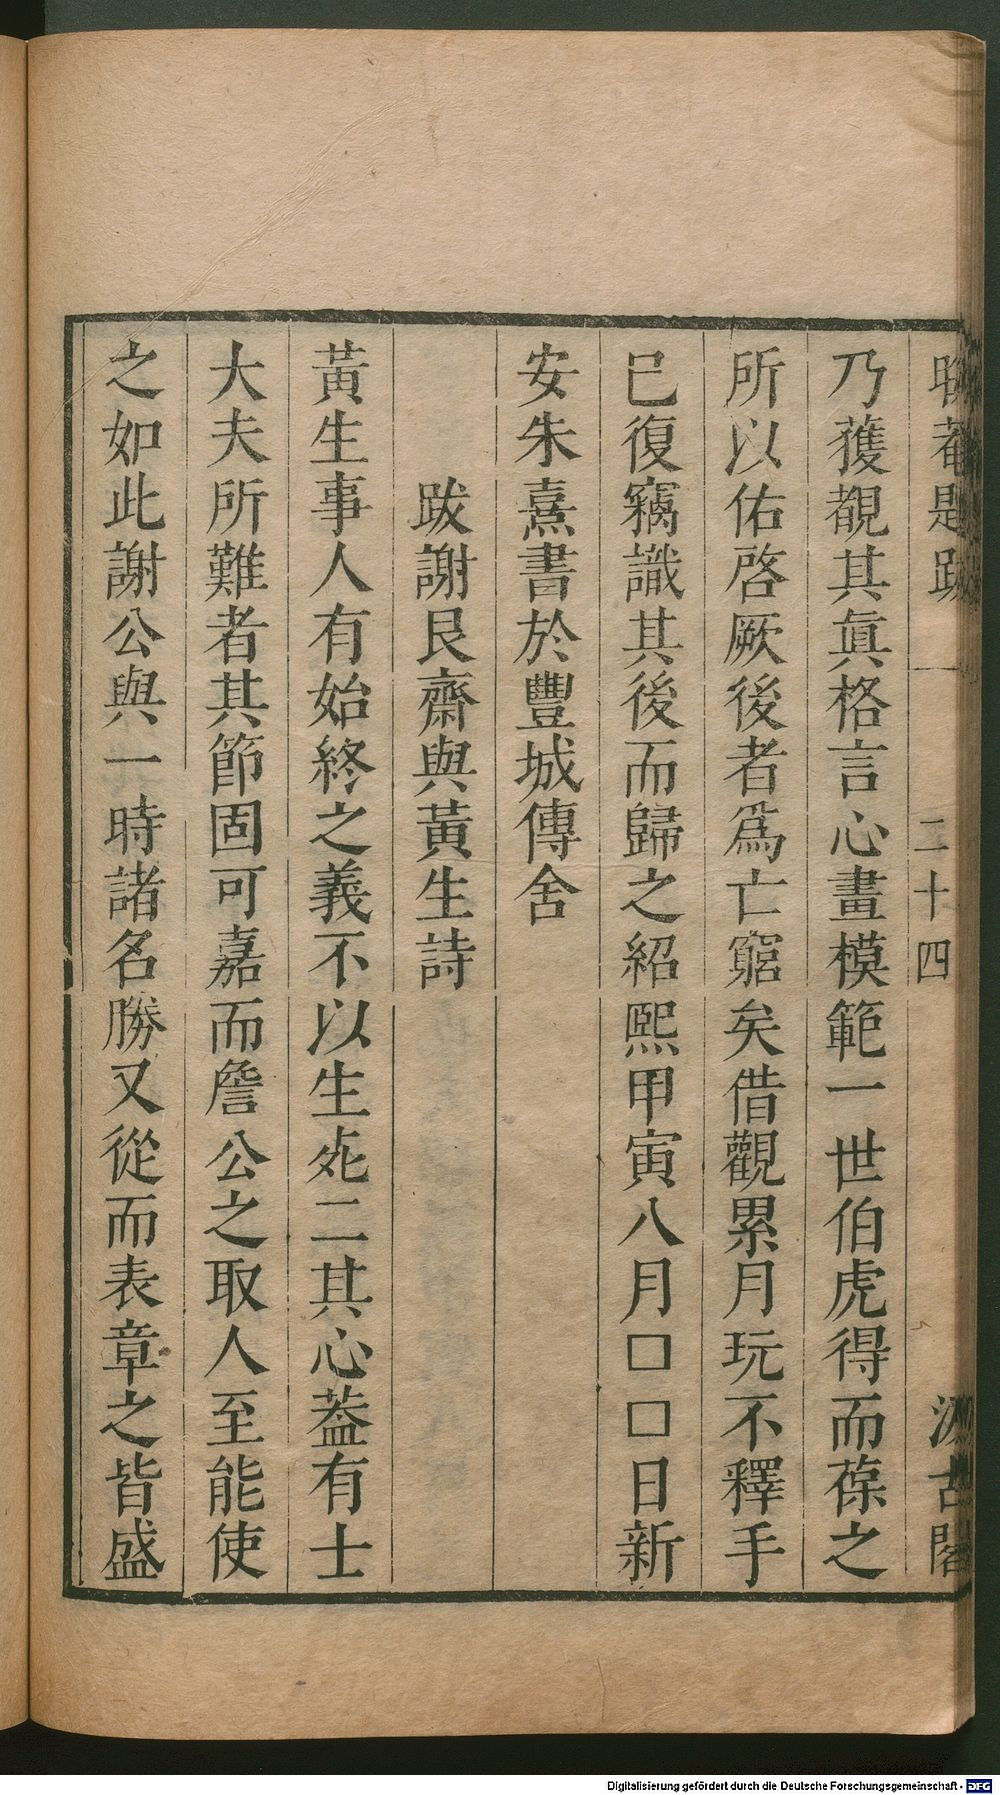 晦菴題跋 一 二十四 汲古閣
乃獲覩其眞格言心畫模範一世伯虎得而葆之
所以佑啓厥後者爲亡窮矣借觀累月玩不釋手
已復竊識其後而歸之紹熙甲寅八月□□日新
安朱熹書於豐城傳舍
跋謝艮齋與黃生詩
黃生事人有始終之義不以生死二其心葢有士
大夫所難者其節固可嘉而詹公之取人至能使
之如此謝公與一時諸名勝又從而表章之皆盛
Digitalisierung gefördert durch die Deutsche Forschungsgemeinschaft - DFG